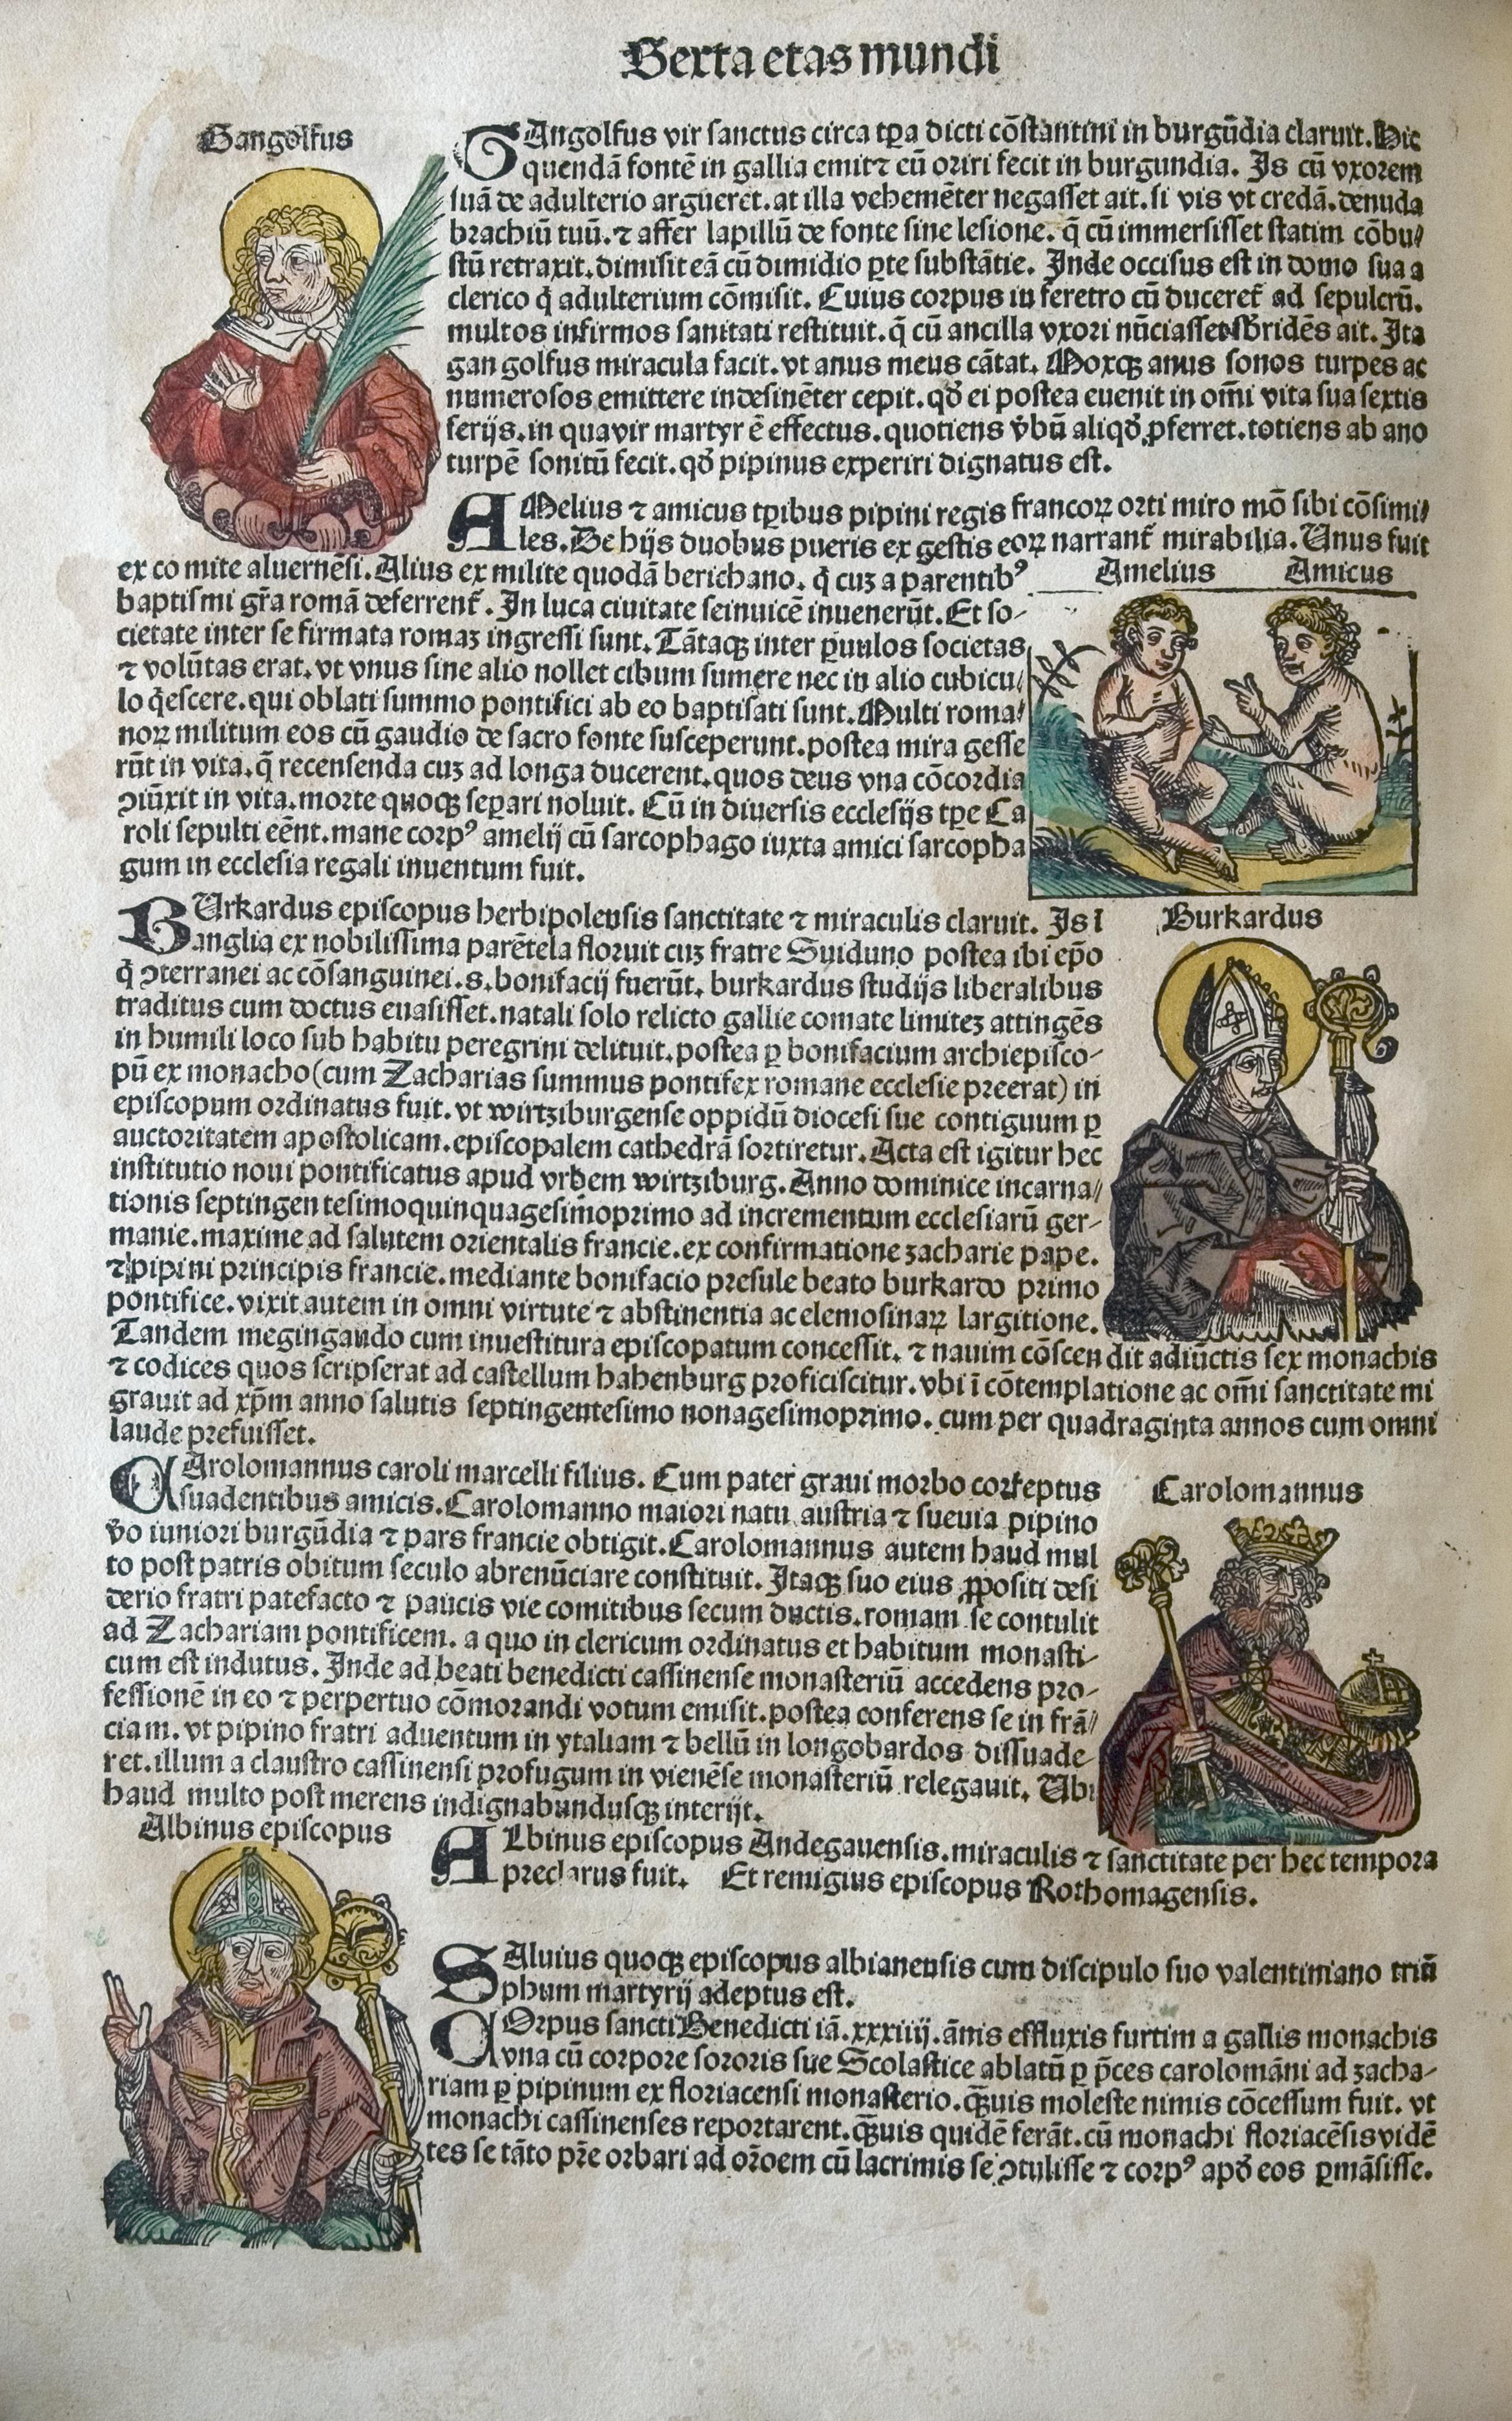 Sexta etas mundi
Gangolfus
GAngolfus vir sanctus circa tp̄a dicti cōstantini in burgūdia claruit. Hic
quendā fontē in gallia emit ⁊ eū oriri fecit in burgundia. Is cū vxorem
suā de adulterio argueret. at illa vehemēter negasset ait. si vis vt credā. denuda
brachiū tuū. ⁊ affer lapillū de fonte sine lesione. q̄ cū immersisset statim cōbu/
stū retraxit. dimisit eā cū dimidio ꝑte substātie. Inde occisus est in domo sua a
clerico q̇ adulterium cōmisit. Cuius corpus in feretro cū duceret̄ ad sepulcrū.
multos infirmos sanitati restituit. q̄ cū ancilla vxori nūciasset sb̄ridēs ait. Ita
gan golfus miracula facit. vt anus meus cātat. Moxqꝫ anus sonos turpes ac
numerosos emittere indesinēter cepit. qd̄ ei postea euenit in om̄i vita sua sextis
ferijs. in qua vir martyr ē effectus. quotiens v̄bū aliqd̄ ꝓferret. totiens ab ano
turpē sonitū fecit. qd̄ pipinus experiri dignatus est.
AMelius ⁊ amicus tꝑibus pipini regis francoꝝ orti miro mō sibi cōsimi/
les. De hijs duobus pueris ex gestis eoꝝ narrant̄ mirabilia. Unus fuit
ex co mite aluernēsi. Alius ex milite quodā berichano. q̇ cuꝫ a parentibꝰ
Amelius Amicus
baptismi gr̄a romā deferrent̄. In luca ciuitate seinuicē inuenerūt. Et so-
cietate inter se firmata romaꝫ ingressi sunt. Tātaqꝫ inter ꝑuulos societas
⁊ volūtas erat. vt vnus sine alio nollet cibum sumere nec in alio cubicu/
lo q̇escere. qui oblati summo pontifici ab eo baptisati sunt. Multi roma/
noꝝ militum eos cū gaudio de sacro fonte susceperunt. postea mira gesse
rūt in vita. q̄ recensenda cuꝫ ad longa ducerent. quos deus vna cōcordia
ꝯiūxit in vita. morte quoqꝫ seꝑari noluit. Cū in diuersis ecclesijs tꝑe Ca
roli sepulti eēnt. mane corpꝰ amelij cū sarcophago iuxta amici sarcopha
gum in ecclesia regali inuentum fuit.
BUrkardus episcopus herbipolensis sanctitate ⁊ miraculis claruit. Is ī
Burkardus
anglia ex nobilissima parētela floruit cuꝫ fratre Suiduno postea ibi ep̄o
q̇ ꝯterranei ac cōsanguinei .s. bonifacij fuerūt. burkardus studijs liberalibus
traditus cum doctus euasisset. natali solo relicto gallie comate limiteꝫ attingēs
in humili loco sub habitu peregrini delituit. postea ꝑ bonifacium archiepisco-
pū ex monacho (cum Zacharias summus pontifex romane ecclesie preerat) in
episcopum ordinatus fuit. vt wirtziburgense oppidū diocesi sue contiguum ꝑ
auctoritatem apostolicam. episcopalem cathedrā sortiretur. Acta est igitur hec
institutio noui pontificatus apud vrbem wirtziburg. Anno dominice incarna/
tionis septingen tesimoquinquagesimoprimo ad incrementum ecclesiarū ger-
manie. maxime ad salutem orientalis francie. ex confirmatione zacharie pape.
⁊ pipini principis francie. mediante bonifacio presule beato burkardo primo
pontifice. vixit autem in omni virtute ⁊ abstinentia ac elemosinaꝝ largitione.
Tandem megingaudo cum inuestitura episcopatum concessit. ⁊ nauim cōscen dit adiūctis sex monachis
⁊ codices quos scripserat ad castellum hahenburg proficiscitur. vbi ī cōtemplatione ac om̄i sanctitate mi
grauit ad xp̄m anno salutis septingentesimo nonagesimoprimo. cum per quadraginta annos cum omni
laude prefuisset.
CArolomannus caroli marcelli filius. Cum pater graui morbo correptus
Carolomannus
suadentibus amicis. Carolomanno maiori natu austria ⁊ sueuia pipino
v̄o iuniori burgūdia ⁊ pars francie obtigit. Carolomannus autem haud mul
to post patris obitum seculo abrenūciare constituit. Itaqꝫ suo eius ꝓpositi desi
derio fratri patefacto ⁊ paucis vie comitibus secum ductis. romam se contulit
ad Zachariam pontificem. a quo in clericum ordinatus et habitum monasti-
cum est indutus. Inde ad beati benedicti cassinense monasteriū accedens pro-
fessionē in eo ⁊ perpertuo cōmorandi votum emisit. postea conferens se in frā/
ciam. vt pipino fratri aduentum in ytaliam ⁊ bellū in longobardos dissuade
ret. illum a claustro cassinensi profugum in vienēse monasteriū relegauit. Ubi
haud multo post merens indignabundusqꝫ interijt.
Albinus episcopus
ALbinus episcopus Andegauensis. miraculis ⁊ sanctitate per hec tempora
preclarus fuit. Et remigius episcopus Rothomagensis.
SAluius quoqꝫ episcopus albianensis cum discipulo suo valentiniano triū
phum martyrij adeptus est.
COrpus sancti Benedicti iā .xxxiiij. ānis effluxis furtim a gallis monachis
vna cū corpore sororis sue Scolastice ablatū ꝑ p̄ces carolomāni ad zacha-
riam ꝑ pipinum ex floriacensi monasterio. qꝫuis moleste nimis cōcessum fuit. vt
monachi cassinenses reportarent. qꝫuis quidē ferāt. cū monachi floriacēsis vidē
tes se tāto pr̄e orbari ad or̄oem cū lacrimis se ꝯtulisse ⁊ corpꝰ apd̄ eos ꝑmāsisse.